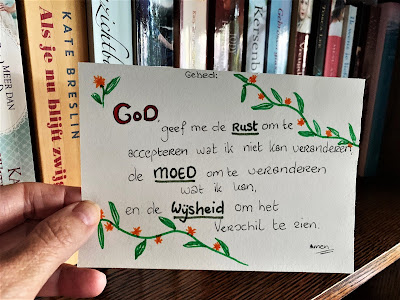 MEER DAN
KATE BRESLIN
Als je nu blijft zwijg
Gebed:
GOD,
geef me de Rust om te
accepteren wat ik niet kan veranderen,
de MOED om te veranderen
wat ik kan,
en de Wijsheid om het
verschil te zien.
Amen.